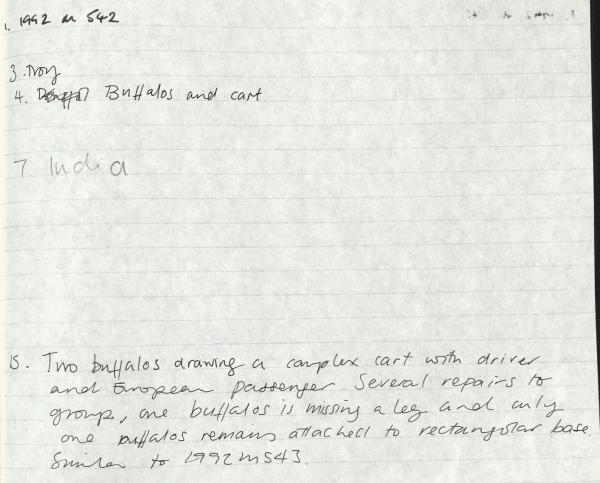 1. 1992 m 542
3. Ivory
4. Buffalos and cart
7. India
15. Two buffalos drawing a complex cart with driver
and European passenger. Several repairs to
group, one buffalos is missing a leg and only
one buffalos remains attached to rectangular base.
Similar to 1992 m 543.